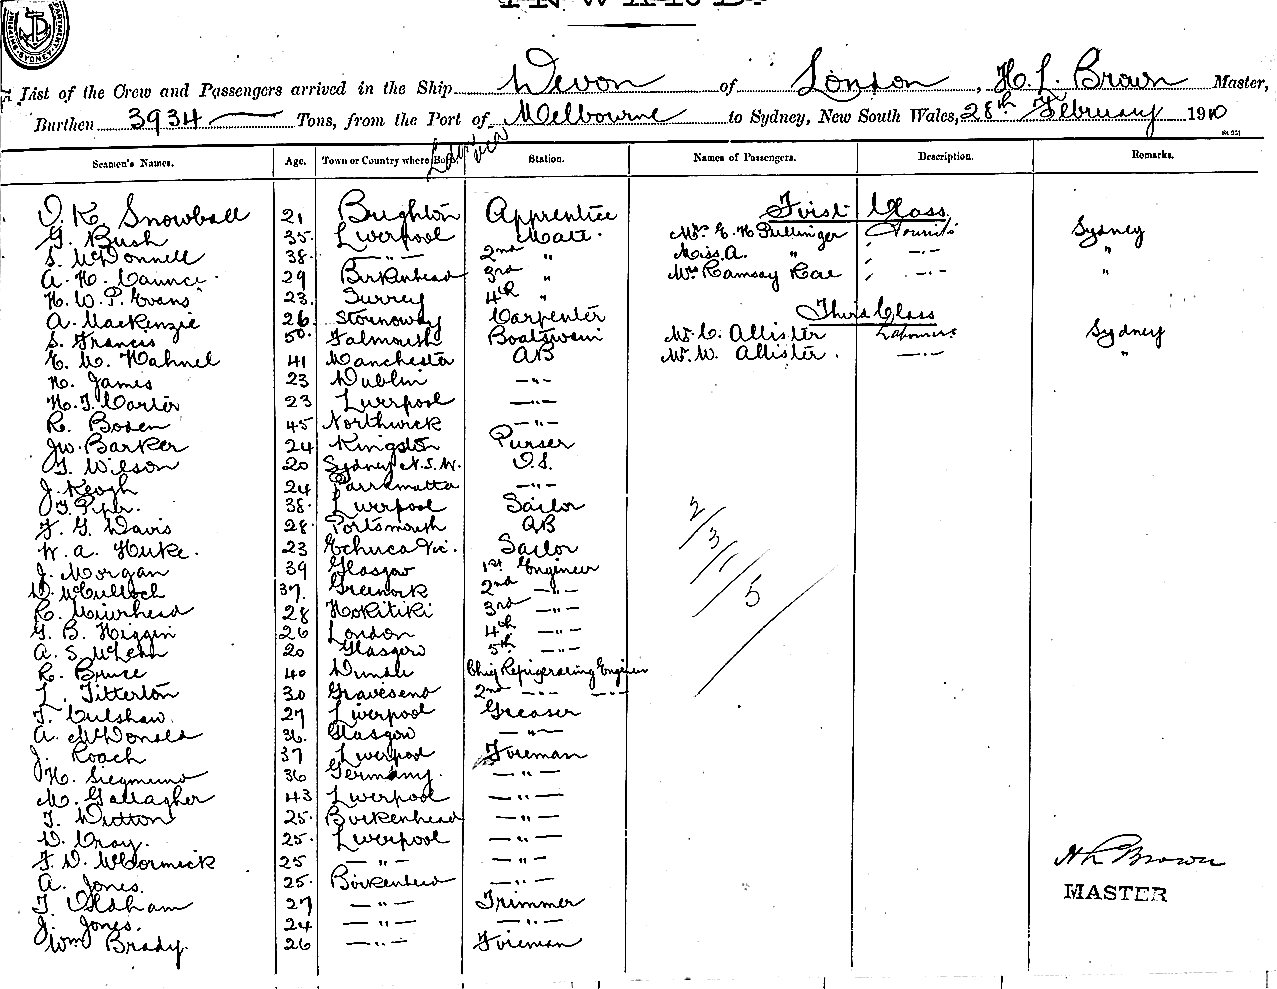 INWARD.
List of the Crew and Passengers arrived in the Ship Devon of London, H. L. Brown Master,
Burthen 3934 Tons, from the Port of Melbourne to Sydney, New South Wales, 28th February 1910
Seamen's Names. Age. Town or Country where Born. Station. Names of Passengers. Description. Remarks.
O. K. Snowball 21 Brighton Apprentice First Class
G. Bush 35 Liverpool Mate Mr. E. H. Pullinger Tourist Sydney
S. McDonnell 38 — " — 2nd " Miss A. " — " — "
A. H. 29 Birkenhead 3rd " Mrs Ramsay Rae — " — "
H. W. P. Evans 23 Surrey 4th "
A. MacKenzie 26 Stornoway Carpenter Third Class
S. Francis 50 Falmouth Boatswain Mr. C. Allister Labourers Sydney
41 Manchester AB Mr. W. Allister — " — "
H. James 23 Dublin — " —
H. J. Carter 23 Liverpool — " —
R. Boden 45 Northwick — " —
Jw. Barker 24 Kingston Purser
G. Wilson 20 Sydney N.S.W. O.S.
J. Keogh 24 Parramatta — " —
Piper 38 Liverpool Sailor
F. G. Davis 28 Portsmouth AB
W. A. Huke 23 Echuca Vic. Sailor
J. Morgan 39 Glasgow 1st Engineer
D. McCulloch 37 Greenock 2nd — " —
R. Muirhead 28 Hokitiki 3rd — " —
G. B. Higgin 26 London 4th — " —
A. S. McLean 20 Glasgow 5th — " —
R. Bruce 40 Dundee Chief Refrigerating Engineer
L. Titterton 30 Gravesend 2nd — " —
T. Culshaw 27 Liverpool Greaser
A. McDonald 36 Glasgow — " —
J. Roach 37 Liverpool Fireman
H. Siegmund 36 Germany — " —
M. Gallagher 43 Liverpool — " —
T. Dutton 25 Birkenhead — " —
D. Cray 25 Liverpool — " —
F. D. McCormick 25 — " — — " —
A. Jones 25 Birkenhead — " —
T. Oldham 27 — " — Trimmer
J. Jones 24 — " — — " —
Wm Brady 26 — " — Fireman
2/3/1/5
H L Brown
MASTER